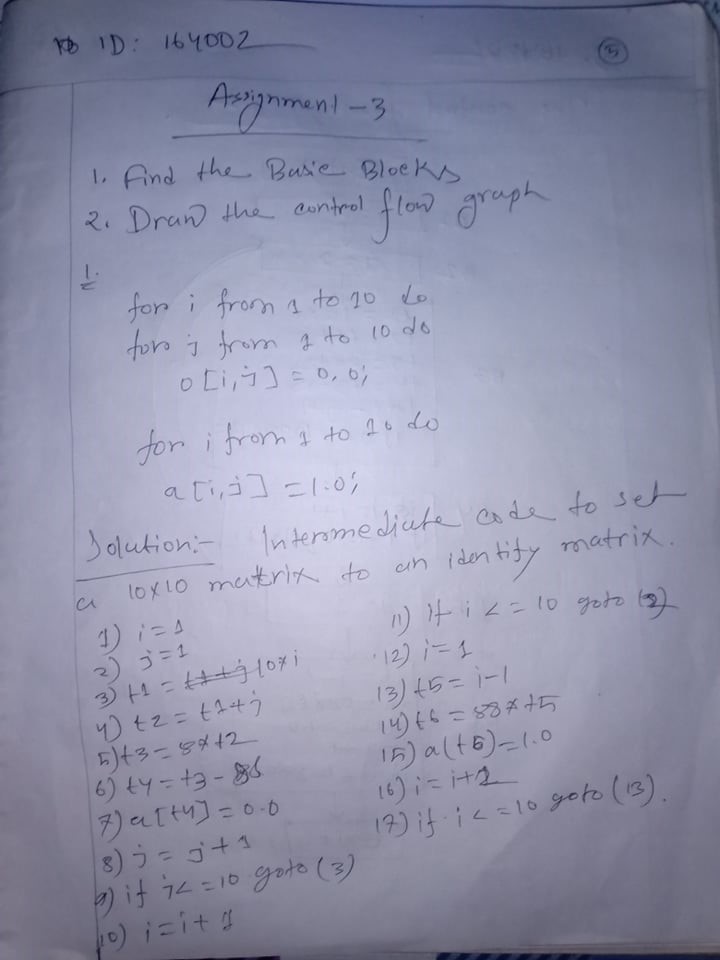 ID: 164002
5
Assignment - 3
1. Find the Basic Blocks
2. Draw the control flow graph
1.
for i from 1 to 10 do
for j from 1 to 10 do
o[i,j] = 0.0;
for i from 1 to 10 do
a[i,j] = 1.0;
Solution:- Intermediate code to set
a 10x10 matrix to an identify matrix.
1) i = 1
2) j = 1
3) t1 = 10*i
4) t2 = t1+j
5) t3 = 8*t2
6) t4 = t3 -
7) a[t4] = 0.0
8) j = j+1
9) if j <= 10 goto (3)
10) i = i + 1
11) if i <= 10 goto (2)
12) i = 1
13) t5 = i-1
14) t6 = 88*t5
15) a(t6) = 1.0
16) i = i+1
17) if i <= 10 goto (13).